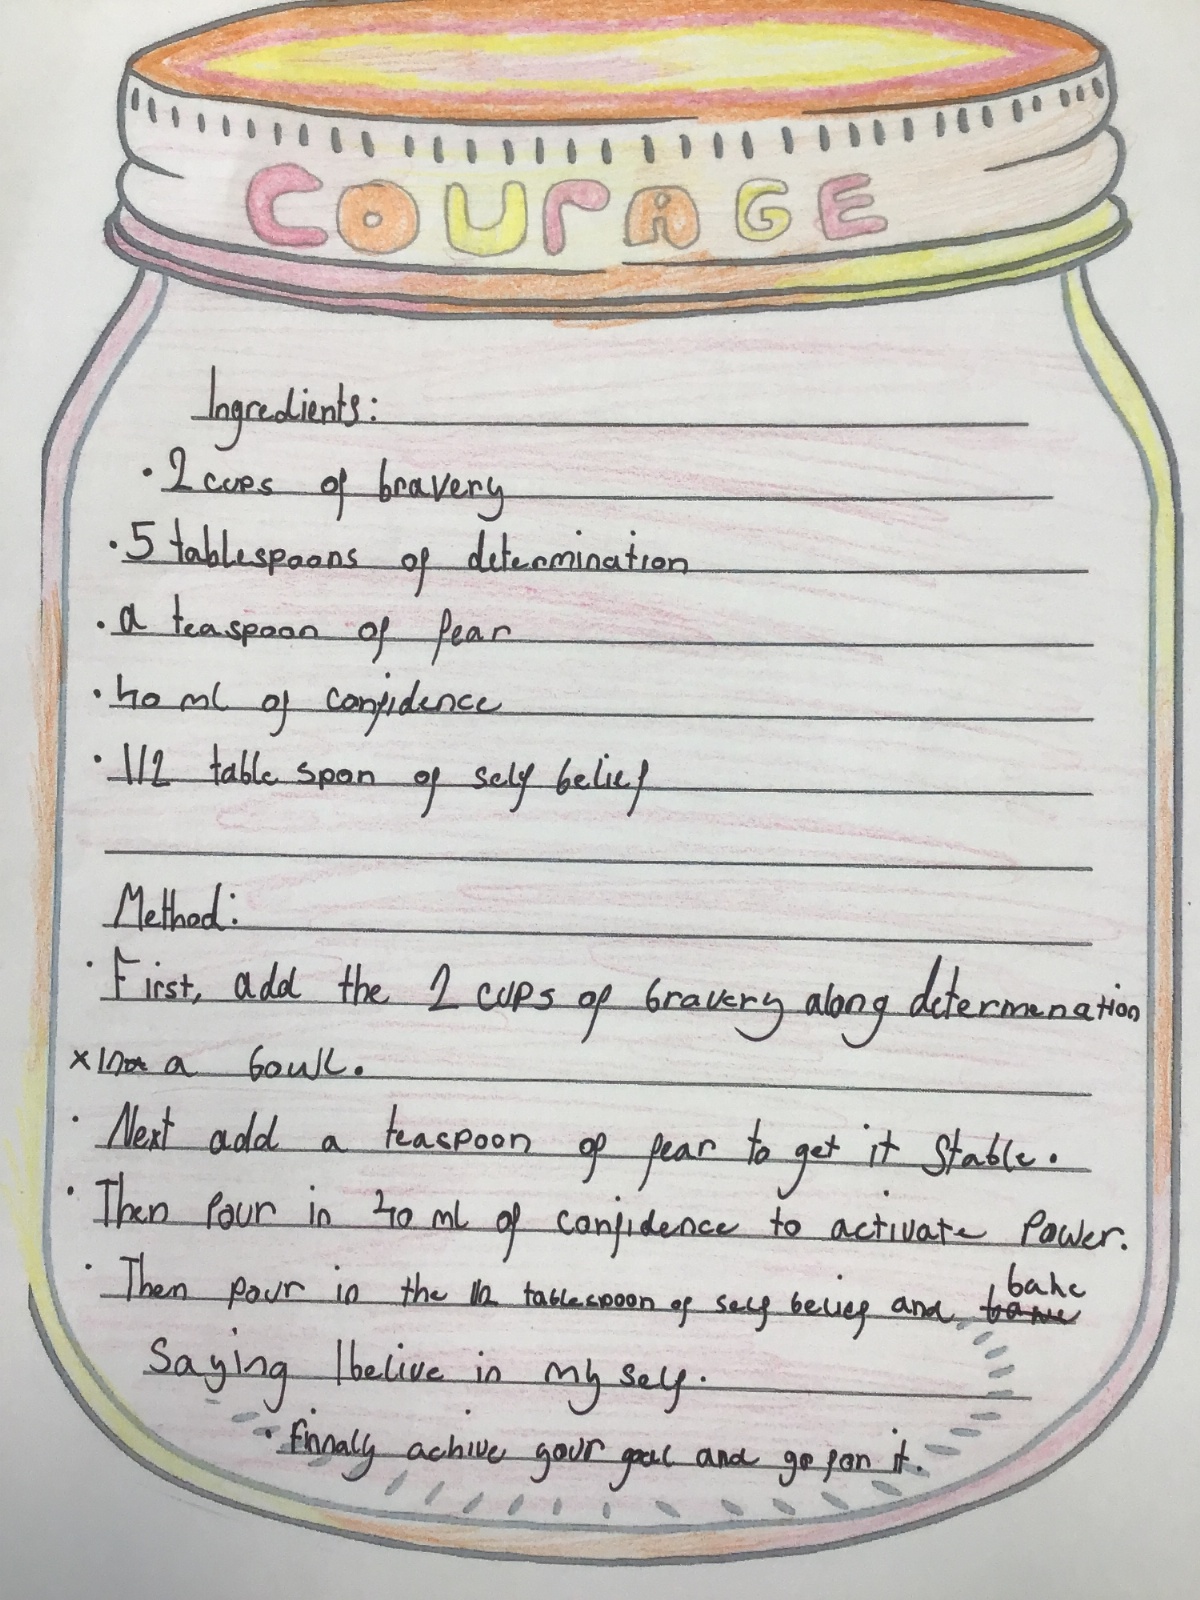 COURAGE
Ingredients:
· 2 cups of bravery
· 5 tablespoons of determination
· a teaspoon of fear
· 40 ml of confidence
· 1/2 table spon of self belief
Method:
· First, add the 2 cups of bravery along determenation
× a bowl.
· Next add a teaspoon of fear to get it Stable.
· Then Pour in 40 ml of confidence to activate Power.
bake
· Then pour in the 1/2 tablespoon of self belief and
Saying I belive in my self.
· finnaly achive your goal and go for it.